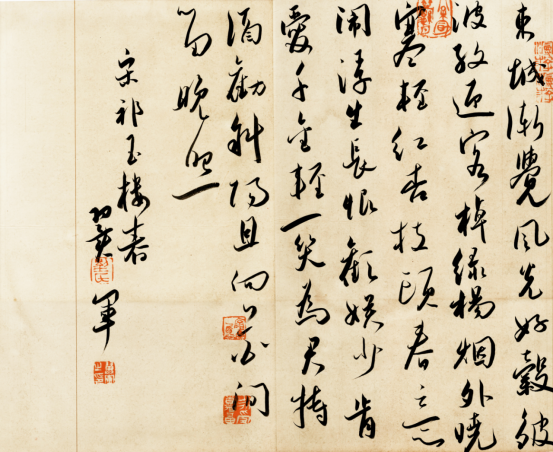 東城漸覺風光好縠皺
波紋迎客棹綠楊烟外曉
寒輕紅杏枝頭春意
闹浮生長恨歡娛少肯
愛千金輕一笑為君持
酒勸斜陽且向花間
留晚照
宋祁玉樓春